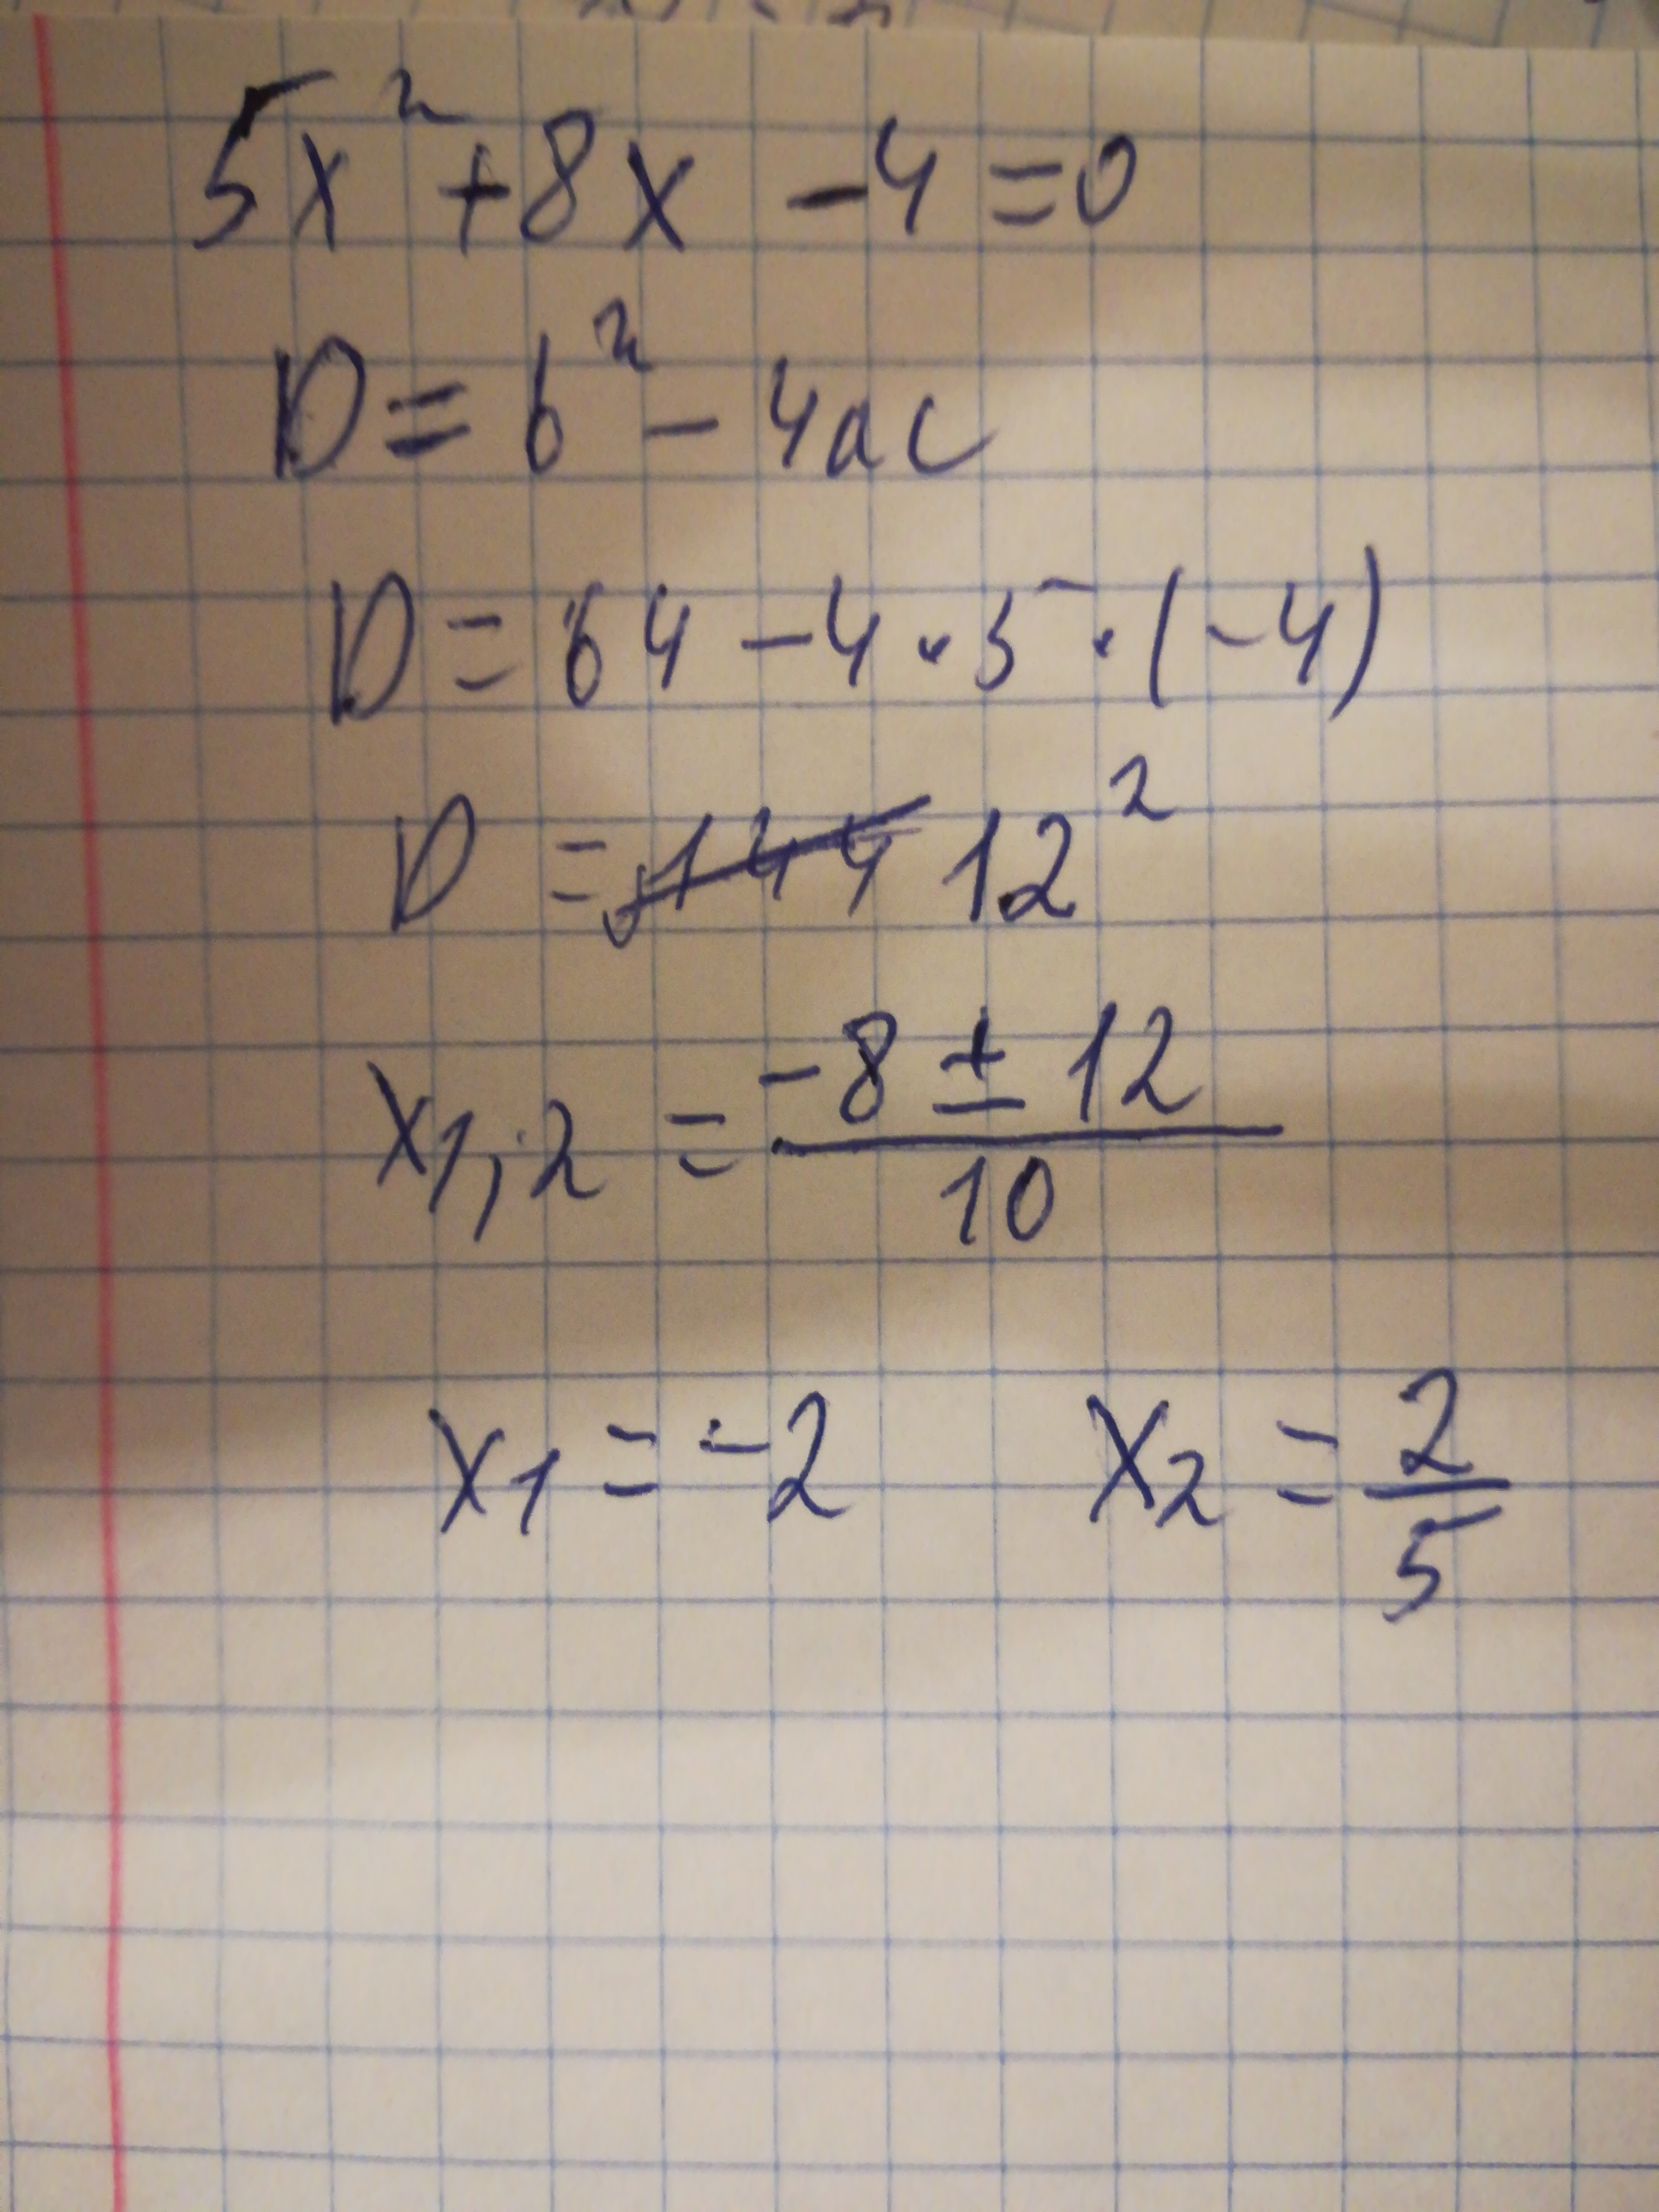 5x² + 8x - 4 = 0
D = b² - 4ac
D = 64 - 4 · 5 · (-4)
D = 144 12²
x1,2 = (-8 ± 12) / 10
x1 = -2 x2 = 2/5